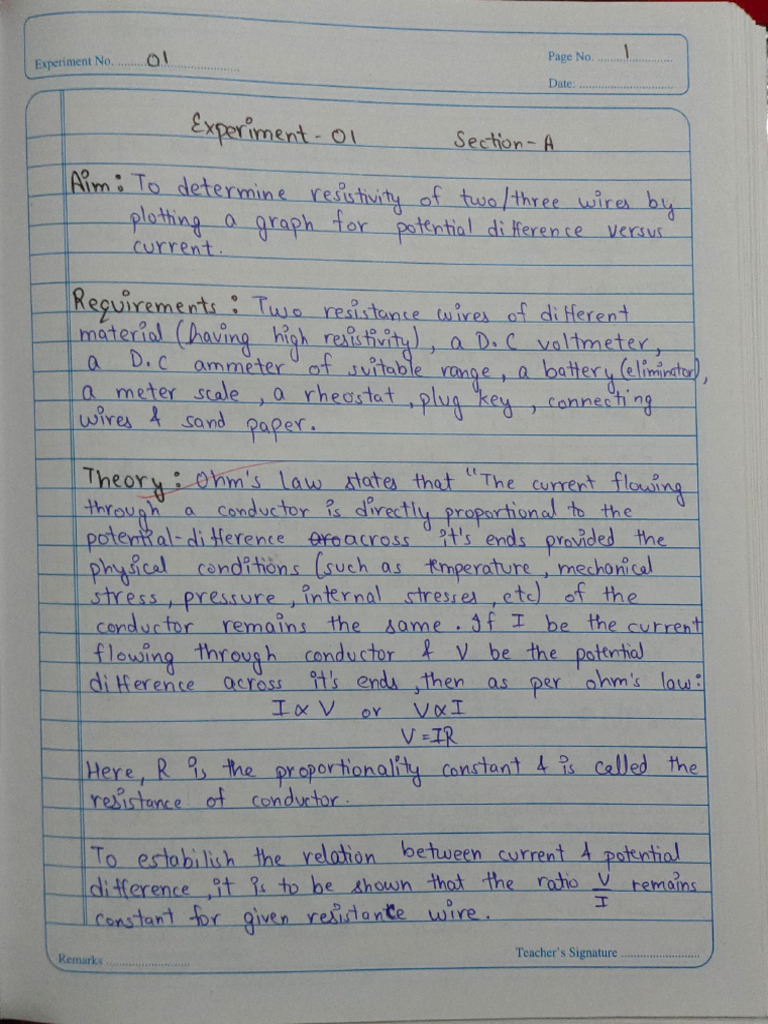 Experiment No. ........01.....................
Page No. .......1...............
Date: ............................
Experiment - 01 Section - A
Aim: To determine resistivity of two/three wires by
plotting a graph for potential difference versus
current.
Requirements: Two resistance wires of different
material (having high resistivity), a D.C voltmeter,
a D.C ammeter of suitable range, a battery (eliminator),
a meter scale, a rheostat, plug key, connecting
wires & sand paper.
Theory: Ohm's law states that "The current flowing
through a conductor is directly proportional to the
potential-difference across it's ends provided the
physical conditions (such as temperature, mechanical
stress, pressure, internal stresses, etc) of the
conductor remains the same. If I be the current
flowing through conductor & V be the potential
difference across it's ends, then as per ohm's law:
I ∝ V or V ∝ I
V = IR
Here, R is the proportionality constant & is called the
resistance of conductor.
To estabilish the relation between current & potential
difference, it is to be shown that the ratio V/I remains
constant for given resistance wire.
Remarks ........................
Teacher's Signature ........................